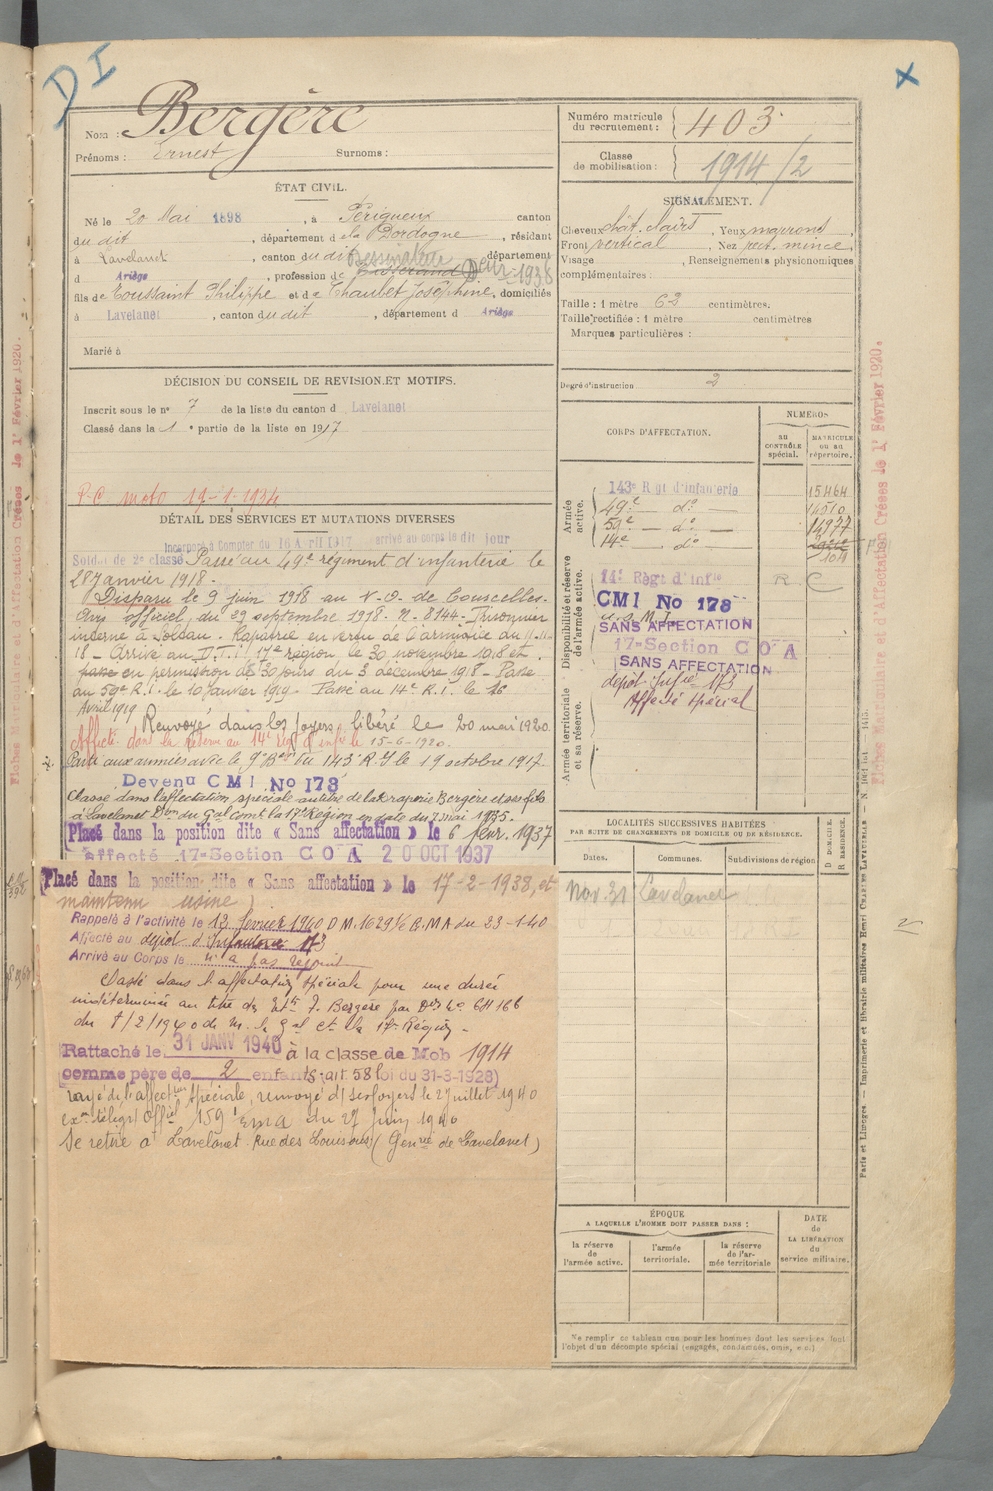 DI
X
Nom : Bergère
Prénoms : Ernest Surnoms :
ÉTAT CIVIL.
Né le 20 Mai 1898, à Périgueux canton
du dit, département de la Dordogne, résidant
à Lavelanet, canton du dit, département
d Ariège, profession de Tisserand Dessinateur 1938
fils de Toussaint Philippe et de Chaubet Joséphine, domiciliés
à Lavelanet, canton du dit, département d Ariège
Marié à
DÉCISION DU CONSEIL DE REVISION ET MOTIFS.
Inscrit sous le n° 7 de la liste du canton d Lavelanet
Classé dans la 1e partie de la liste en 1917
P.C. moto 19-1-1934
DÉTAIL DES SERVICES ET MUTATIONS DIVERSES
Incorporé à Compter du 16 Avril 1917 arrivé au corps le dit jour
Soldat de 2e classe Passé au 49e régiment d'infanterie le
28 Janvier 1918.
Disparu le 9 juin 1918 au N.O. de Courcelles.
Avis officiel du 29 septembre 1918. N. 8144. Prisonnier
interné à Soldau. Rapatrié en vertu de l'armistice du 11-11-
18 - Arrivé au D.T.I. 17e région le 30 novembre 1918 et
passe en permission de 30 jours du 3 décembre 1918 - Passé
au 59e R.I. le 10 Janvier 1919. Passé au 14e R.I. le 16
Avril 1919
Renvoyé dans les foyers, libéré le 20 mai 1920.
Affecté dans la réserve au 14e Régt d'infie le 15-6-1920.
Parti aux armées avec le 9e Bon du 143e R.I le 19 octobre 1917.
Devenu CMI No 178
Classé dans l'affectation spéciale au titre de la Draperie Bergère et ses fils
à Lavelanet Don du Gal Comt la 17e Région en date du 7 mai 1935.
Placé dans la position dite « Sans affectation » le 6 févr. 1937
affecté 17e Section C O A 20 OCT 1937
Placé dans la position dite « Sans affectation » le 17-2-1938, et
maintenu usine
Rappelé à l'activité le 13 février 1940 D M. 1629 ½ E.M.A du 23-1-40
Affecté au dépôt d'Infanterie 173
Arrivé au Corps le n'a pas rejoint
Classé dans l'affectation spéciale pour une durée
indéterminée au titre des Ets F. Bergère par Don No 6H166
du 8/2/1940 de M. le Gal Ct la 17e Région.
Rattaché le 31 JANV 1940 à la classe de Mob 1914
comme père de 2 enfants: art 58 loi du 31-3-1928)
rayé de l'affection spéciale, renvoyé ds ses foyers le 27 juillet 1940
ex. télégr. offiel 159 1 EMA du 27 Juin 1940
Se retire à Lavelanet. Rue des (Genrie de Lavelanet)
Numéro matricule
du recrutement : 403
Classe
de mobilisation : 1914/2
SIGNALEMENT.
Cheveux chât. clairs, Yeux marrons,
Front vertical, Nez rect. mince,
Visage, Renseignements physionomiques
complémentaires :
Taille : 1 mètre 62 centimètres.
Taille rectifiée : 1 mètre centimètres
Marques particulières :
Degré d'instruction 2
CORPS D'AFFECTATION.
NUMÉROS
au
CONTRÔLE
spécial.
MATRICULE
ou au
répertoire.
Armée
active.
143e Rgt d'infanterie 15464
49e — do —
59e — do — 14977
14e — do —
Disponibilité et réserve
de l'armée active.
14e Régt d'infie R C
CMI No 178
SANS AFFECTATION
17e Section C O A
SANS AFFECTATION
dépôt Infie 173
Affecté spécial
Armée territoriale
et sa réserve.
LOCALITÉS SUCCESSIVES HABITÉES
PAR SUITE DE CHANGEMENTS DE DOMICILE OU DE RÉSIDENCE.
Dates. Communes. Subdivisions de région
D DOMICILE.
R RÉSIDENCE.
Nov. 31 Lavelanet
ÉPOQUE
A LAQUELLE L'HOMME DOIT PASSER DANS :
la réserve
de
l'armée active.
l'armée
territoriale.
la réserve
de l'ar-
mée territoriale
DATE
de
LA LIBÉRATION
du
service militaire.
Ne remplir ce tableau que pour les hommes dont les services font
l'objet d'un décompte spécial (engagés, condamnés, omis, etc.)
Fiches Matricule et d'Affectation Créées le 1r Février 1920.
Fiches Matricule et d'Affectation Créées le 1r Février 1920.
Paris et Limoges. — Imprimerie et librairie militaires Henri CHARLES-LAVAUZELLE